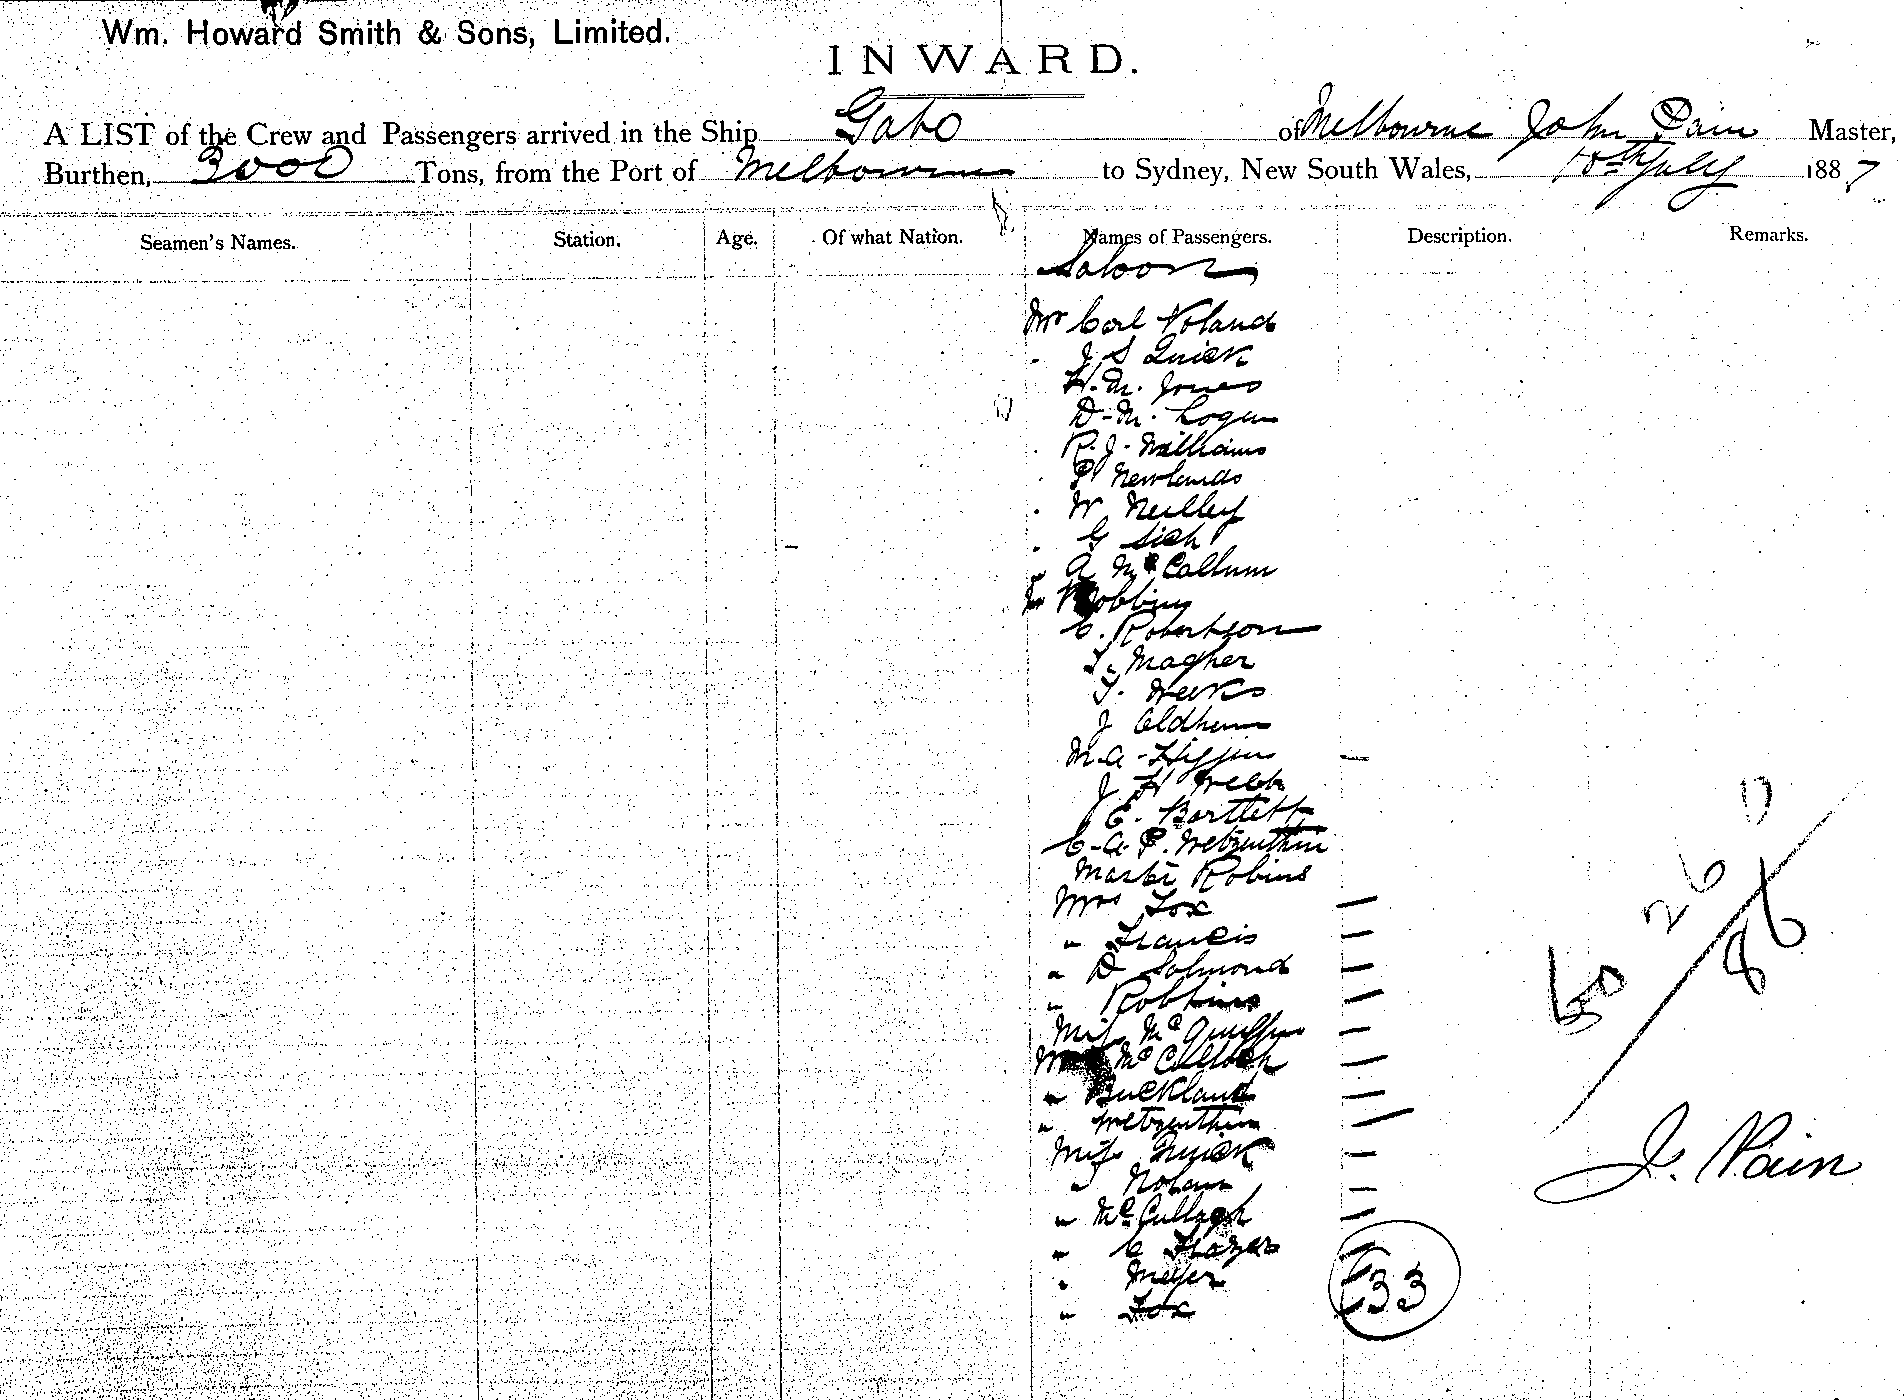 Wm. Howard Smith & Sons, Limited.
INWARD.
A LIST of the Crew and Passengers arrived in the Ship Gabo of Melbourne John Pain Master,
Burthen, 3000 Tons, from the Port of Melbourne to Sydney, New South Wales, 10th July 1887
Seamen's Names. Station. Age. Of what Nation. Names of Passengers. Description. Remarks.
Saloon
Mr Carl Noland
J S Quick
H. M. Jones
D. M. Logan
R. J. Williams
P Newlands
W Neilley
G Sich
A McCallum
Robbins
C. Robertson
T. Magher
T. Weeks
J Oldham
M. A. Higgins
J H Webb
E. Bartlett
C. A. P. Metzenthin
Master Robins
Mrs Fox
" Francis
" D Salmond
" Robbins
Miss Mc
McCulloch
" Buckland
" Metzenthin
Miss Quick
" Nolan
" McCullagh
" C Frazer
" Meyer
" Fox
33
60 26
86
J. Pain